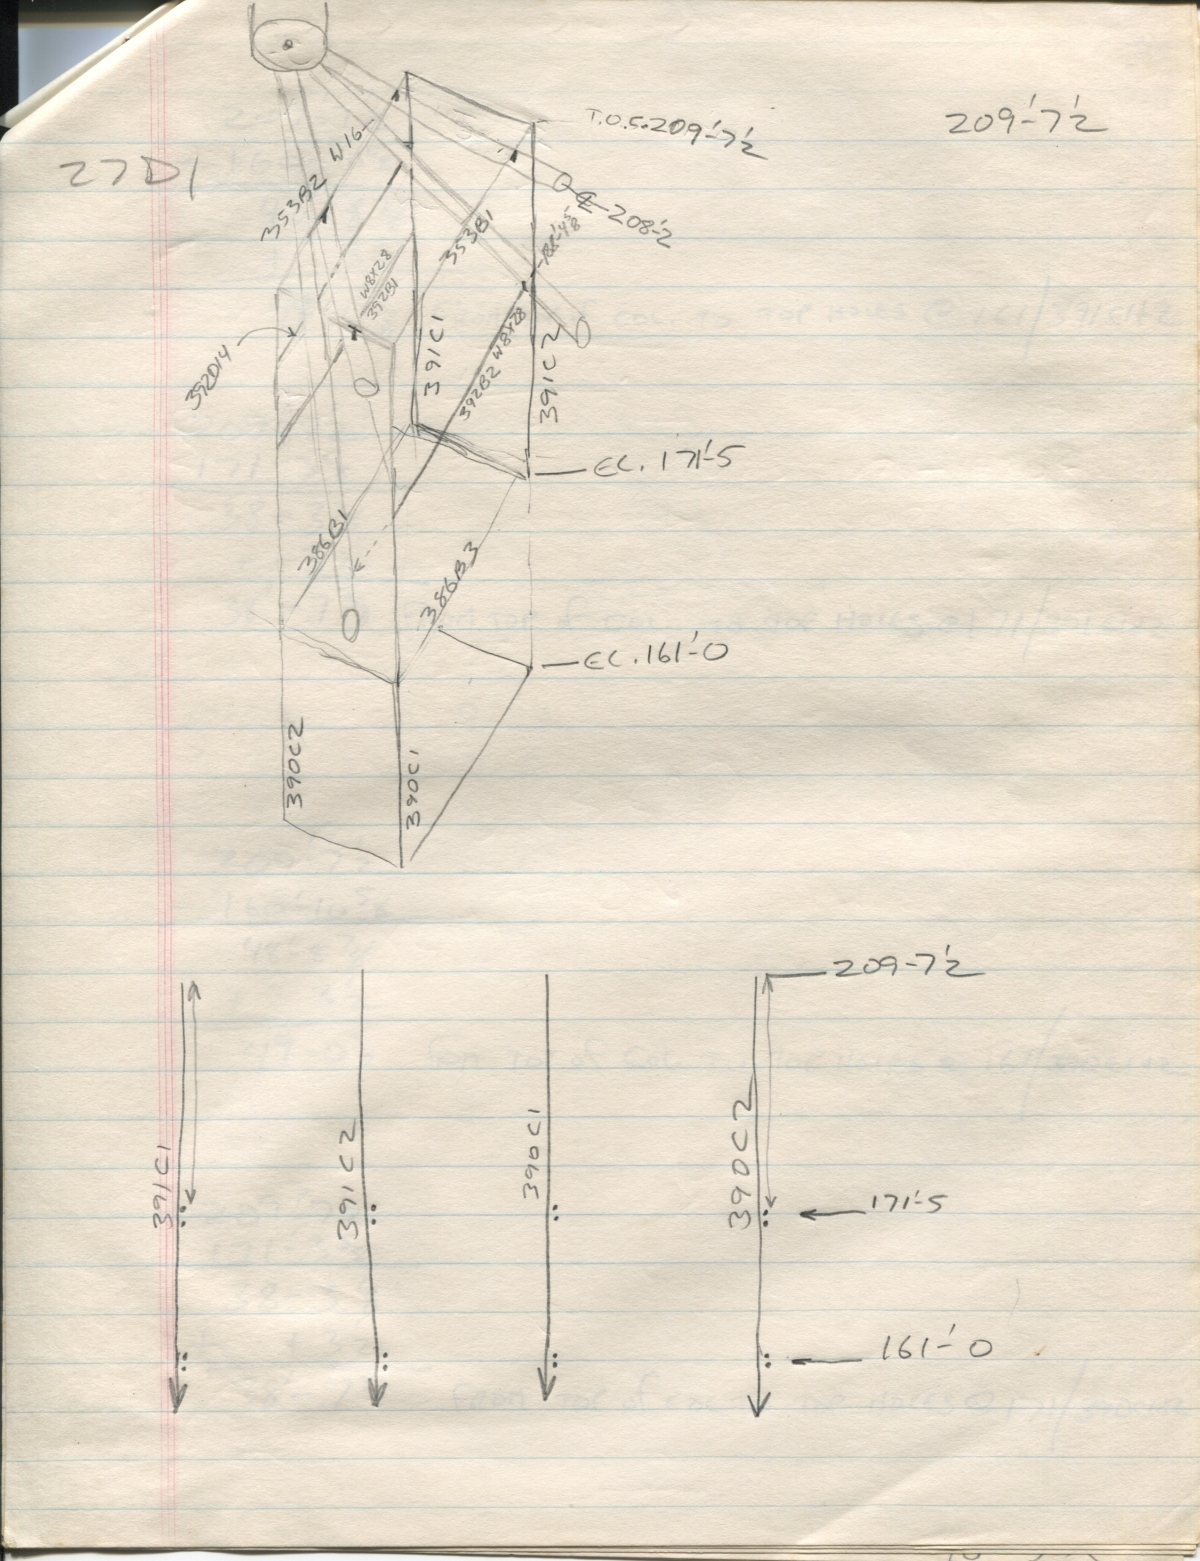 209'-7½
T.O.S. 209'-7½
27D1
W16
353B2
℄ 208'-2
353B1
W8X28
392B1
391C1
392B2 W8X28
391C2
392D14
EL. 171'-5
386B1
386B3
EL. 161'-0
390C2
390C1
209-7½
391C1
391C2
390C1
390C2
171'-5
161'-0